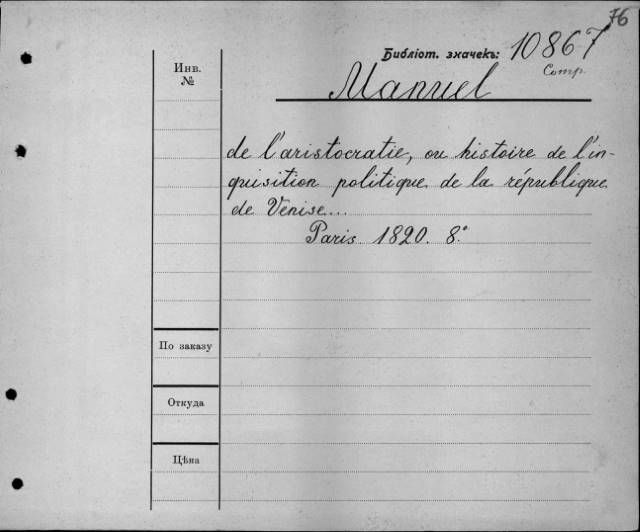 76
Библіот. значекъ: 10867
Comp.
Инв.
№
Manuel
de l'aristocratie, ou histoire de l'in-
quisition politique de la république
de Venise...
Paris 1820. 8°
По заказу
Откуда
Цѣна